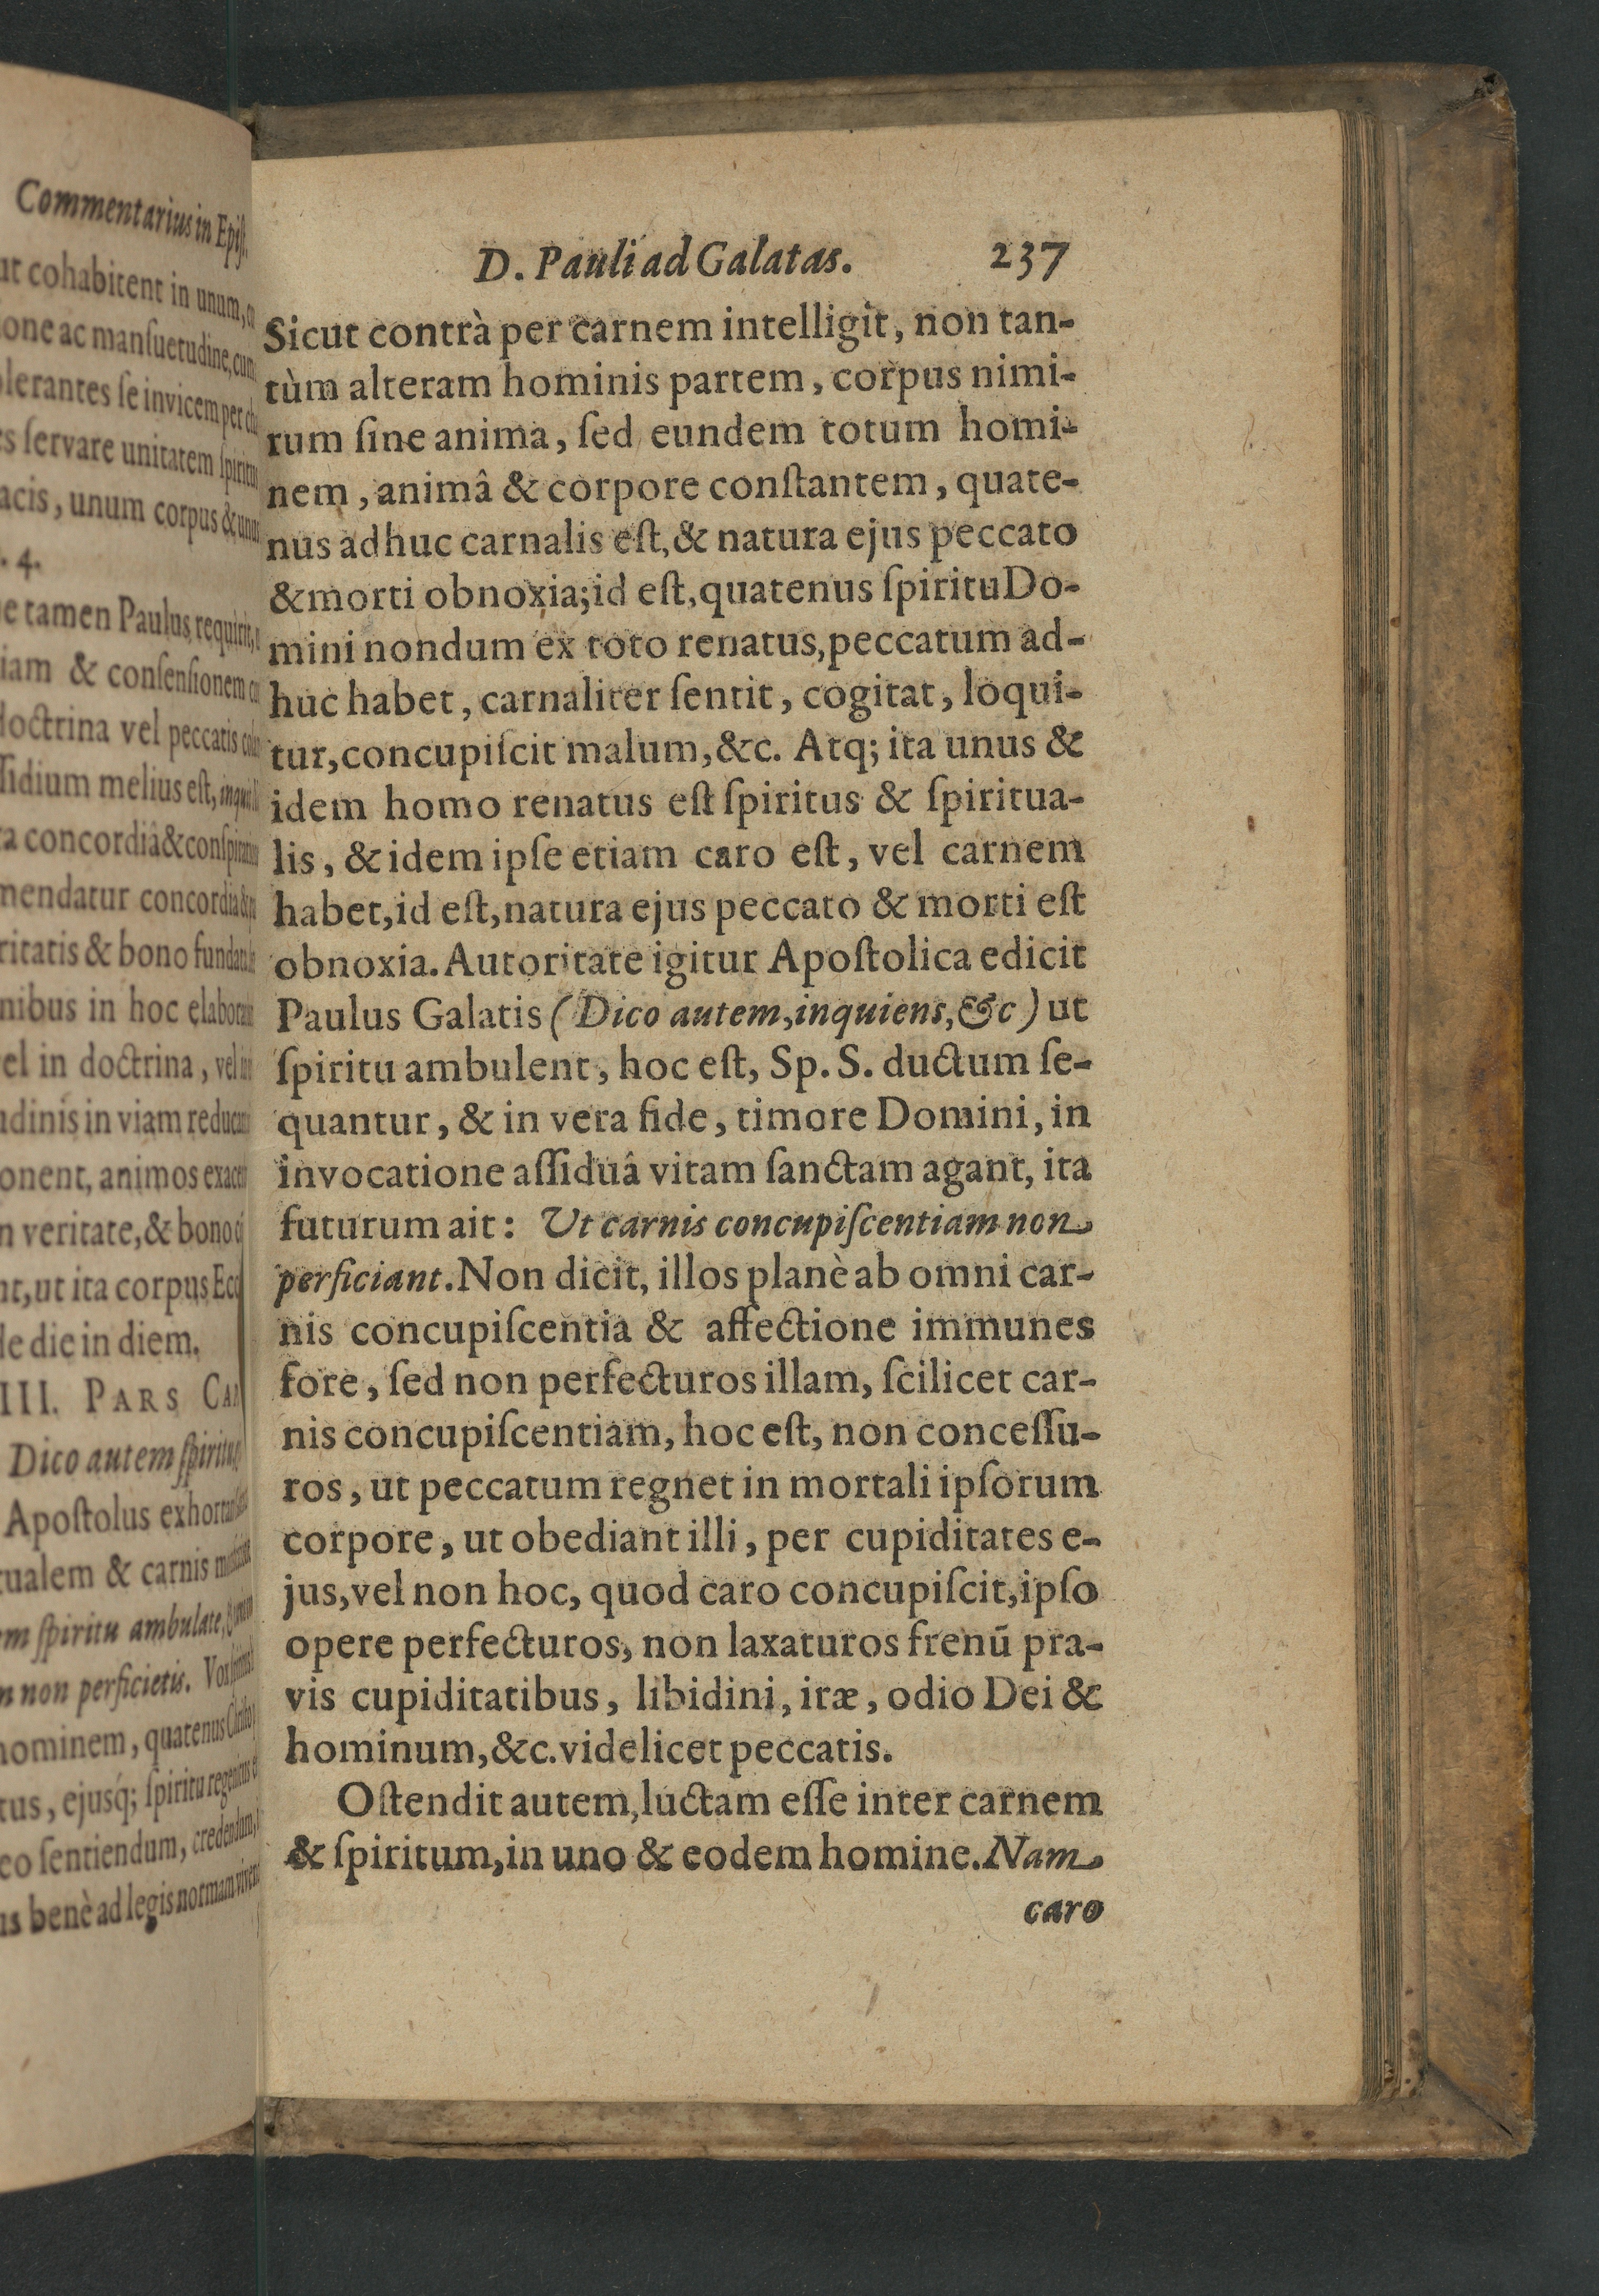 Commentarius in Epiſt.
ut cohabitent in unum,
one ac manſuetudine, cum
lerantes ſe invicem per
s ſervare unitatem ſpiritus
acis, unum corpus &
. 4.
e tamen Paulus requirit,
iam & conſenſionem
doctrina vel peccatis
ſſidium melius eſt,
a concordiâ &
mendatur concordia
ritatis & bono
nibus in hoc
el in doctrina, vel
udinis in viam
onent, animos
n veritate, & bono
nt, ut ita corpus
de die in diem.
III. PARS
Dico autem ſpiritu
Apoſtolus
tualem & carnis
em ſpiritu ambulate,
n non perficietis. Vox
hominem, quatenus
tus, ejusq́; ſpiritu
eo ſentiendum, credendum,
us benè ad legis normam
D. Pauli ad Galatas. 237
Sicut contrà per carnem intelligit, non tan-
tùm alteram hominis partem, corpus nimi-
rum ſine anima, ſed eundem totum homi-
nem, animâ & corpore conſtantem, quate-
nus adhuc carnalis eſt, & natura ejus peccato
& morti obnoxia; id eſt, quatenus ſpiritu Do-
mini nondum ex toto renatus, peccatum ad-
huc habet, carnaliter ſentit, cogitat, loqui-
tur, concupiſcit malum, &c. Atq; ita unus &
idem homo renatus eſt ſpiritus & ſpiritua-
lis, & idem ipſe etiam caro eſt, vel carnem
habet, id eſt, natura ejus peccato & morti eſt
obnoxia. Autoritate igitur Apoſtolica edicit
Paulus Galatis (Dico autem, inquiens, &c) ut
ſpiritu ambulent, hoc eſt, Sp. S. ductum ſe-
quantur, & in vera fide, timore Domini, in
invocatione aſſiduâ vitam ſanctam agant, ita
futurum ait: Ut carnis concupiſcentiam non
perficiant. Non dicit, illos planè ab omni car-
nis concupiſcentia & affectione immunes
fore, ſed non perfecturos illam, ſcilicet car-
nis concupiſcentiam, hoc eſt, non conceſſu-
ros, ut peccatum regnet in mortali ipſorum
corpore, ut obediant illi, per cupiditates e-
jus, vel non hoc, quod caro concupiſcit, ipſo
opere perfecturos, non laxaturos frenū pra-
vis cupiditatibus, libidini, iræ, odio Dei &
hominum, &c. videlicet peccatis.
Oſtendit autem, luctam eſſe inter carnem
& ſpiritum, in uno & eodem homine. Nam
caro